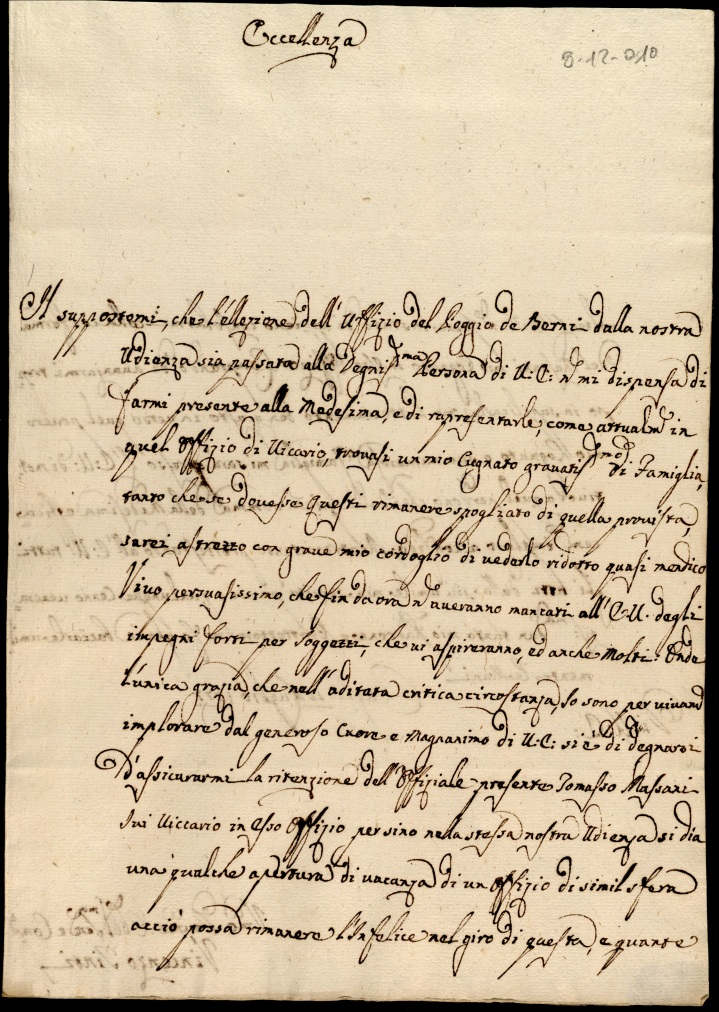 Eccellenza
8-12-810
Il suppostomi, che l'ellezione dell'Uffizio del Poggio de Berni dalla nostra
Udienza sia passata alla Degnis.ma Persona di V.E: n mi dispensa di
farmi presente alla Medesima, e di rapresentarle, come attualm.e in
quel Offizio di Vicario, trovasi un mio Cugnato gravatis.mo di Famiglia,
tanto che se dovesse Questi rimanere spogliato di quella provista,
sarei astretto con grave mio cordoglio di vederlo ridotto quasi mendico
Vivo persuasissimo, che fin da ora n averanno mancati all'E.V. degli
impegni forti per soggetti, che vi aspireranno, ed anche Molti: Onde
l'unica grazia, che nell'aditata critica circostanza, Io sono per vivam.e
implorare dal generoso Cuore e Magnanimo di V.E: si è di degnarsi
D'assicurarmi la ritenzione dell'Offiziale presente Tomasso Massani
Ivi Viccario in Esso Offizio persino nella stessa nostra Udienza si dia
una qualche apertura di vacanza di un Offizio di simil sfera
acciò possa rimanere l'Infelice nel giro di questa, e quante
Vincenzo